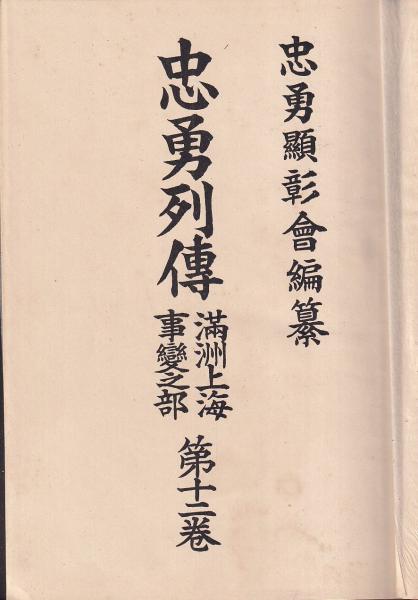 忠勇顯彰會編纂
忠勇列傳
滿洲上海
事變之部
第十二卷